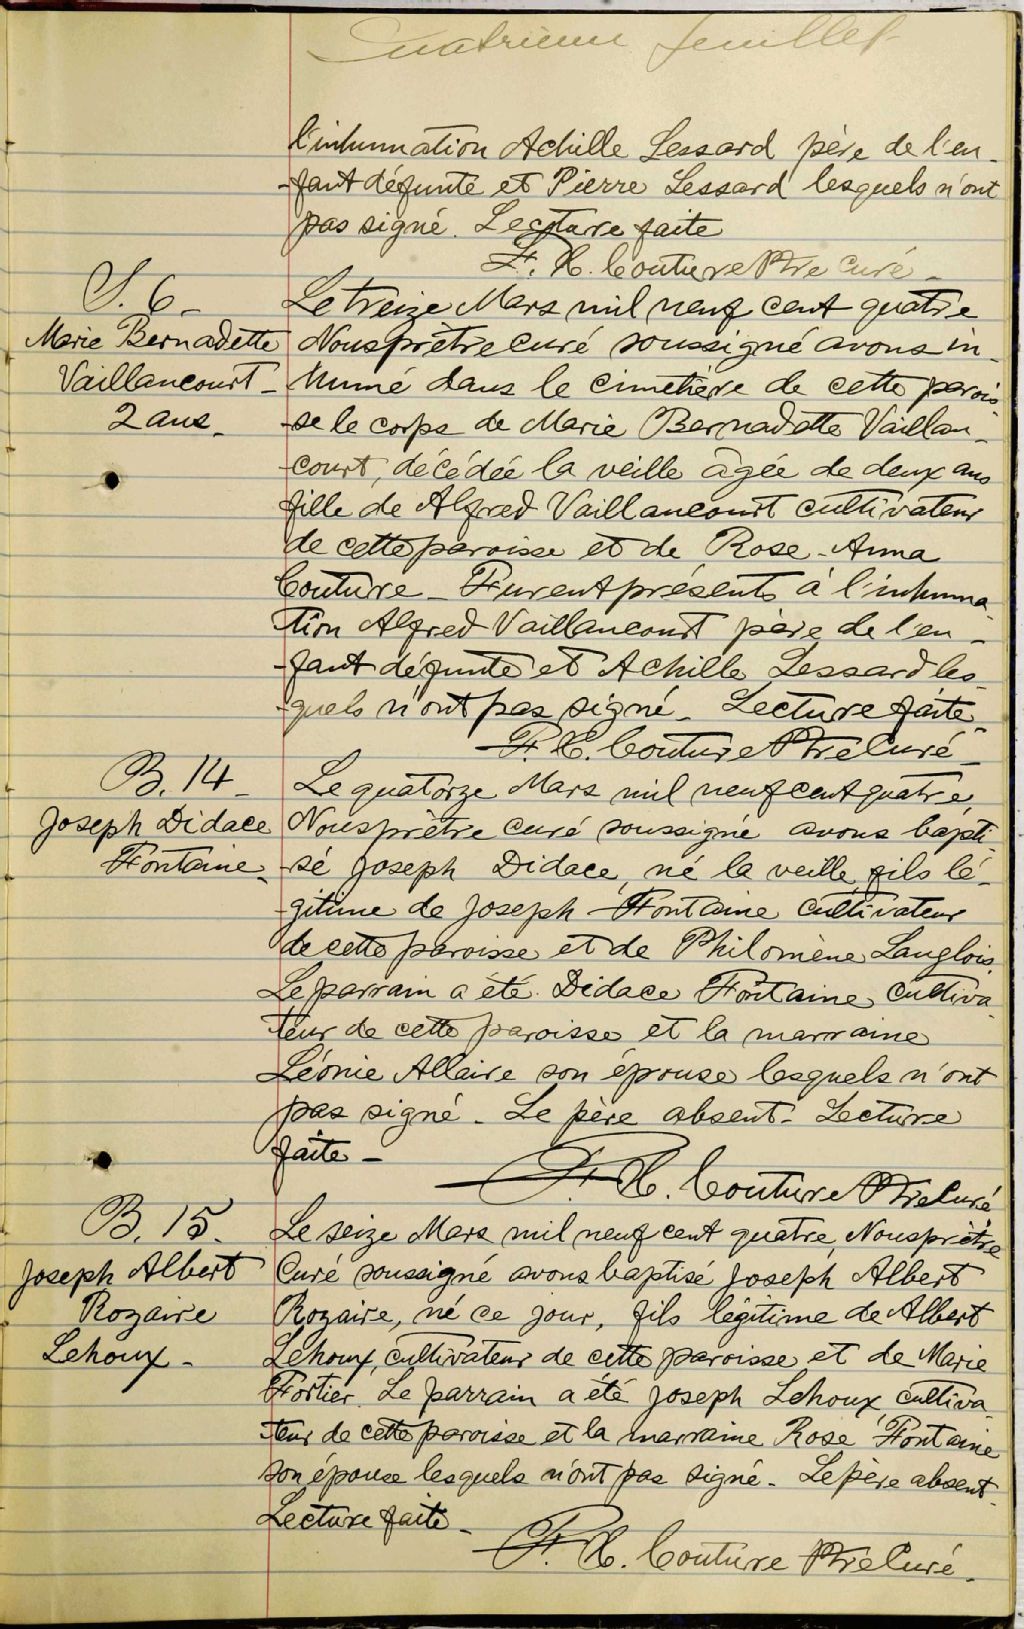 Quatrième feuillet
l'inhumation Achille Lessard père de l'en-
-fant défunte et Pierre Lessard lesquels n'ont
pas signé. Lecture faite
F. X. Couture Ptre Curé -
S. 6 -
Marie Bernadette
Vaillancourt -
2 ans -
Le treize Mars mil neuf cent quatre
Nous prêtre curé soussigné avons in-
humé dans le cimetière de cette parois-
-se le corps de Marie Bernadette Vaillan-
-court, décédée la veille âgée de deux ans
fille de Alfred Vaillancourt cultivateur
de cette paroisse et de Rose-Anna
Couture - Furent présents à l'inhuma-
-tion Alfred Vaillancourt père de l'en-
-fant défunte et Achille Lessard les-
-quels n'ont pas signé - Lecture faite -
F. X. Couture Ptre Curé -
B. 14 -
Joseph Didace
Fontaine -
Le quatorze Mars mil neuf cent quatre,
Nous prêtre curé soussigné avons bapti-
-sé Joseph Didace, né la veille, fils lé-
-gitime de Joseph Fontaine cultivateur
de cette paroisse et de Philomène Langlois.
Le parrain a été Didace Fontaine cultiva-
teur de cette paroisse et la marraine
Léonie Allaire son épouse lesquels n'ont
pas signé - Le père absent - Lecture
faite -
F. X. Couture Ptre Curé
B. 15.
Joseph Albert
Rozaire
Lehoux -
Le seize Mars mil neuf cent quatre, Nous prêtre
Curé soussigné avons baptisé Joseph Albert
Rozaire, né ce jour, fils légitime de Albert
Lehoux, cultivateur de cette paroisse et de Marie
Fortier. Le parrain a été Joseph Lehoux, cultiva-
-teur de cette paroisse et la marraine Rose Fontaine
son épouse lesquels n'ont pas signé - Le père absent -
Lecture faite -
F. X. Couture Ptre Curé -